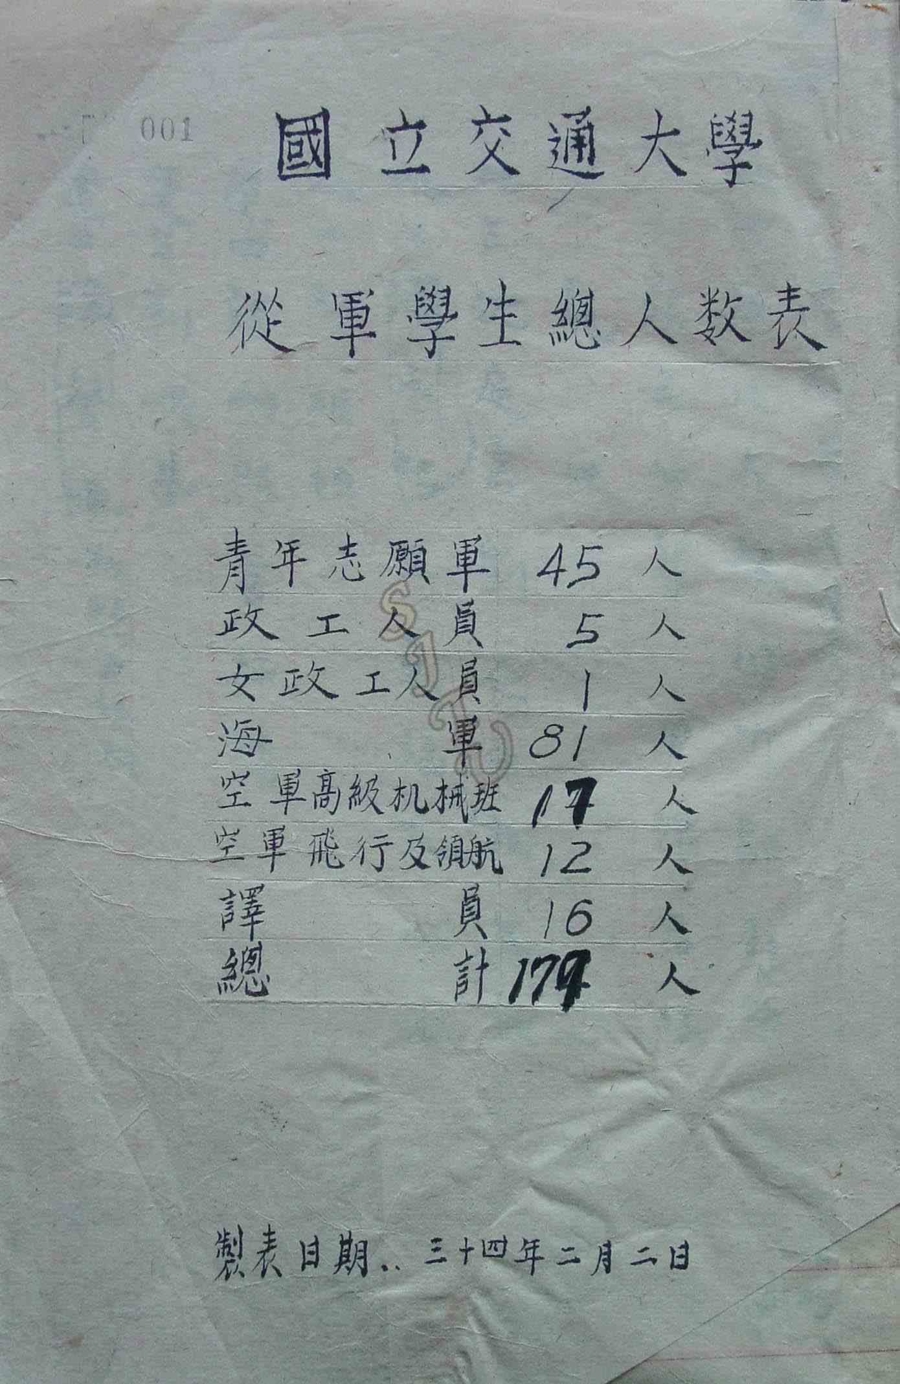 001
國立交通大學
從軍學生總人数表
青年志願軍 45 人
政工人員 5 人
女政工人員 1 人
海軍 81 人
空軍高級机械班 17 人
空軍飛行及領航 12 人
譯員 16 人
總計 177 人
製表日期：三十四年二月二日
SJTU